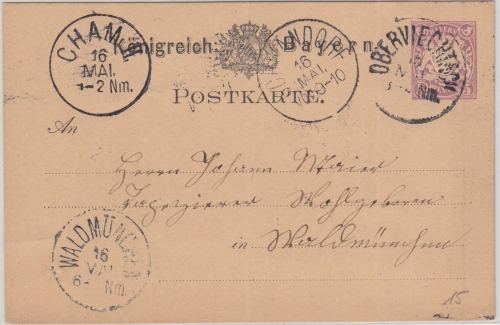 CHAM
16
MAI.
1-2 Nm.
Königreich Bayern
NDORF
16
MAI.
OBERVIECHTACH
Nm.
5
POSTKARTE.
An
Herrn Johann Maier
Tapezierer Wohlgeboren
in Waldmünchen
WALDMÜNCHEN
16
MAI
6- Nm.
15